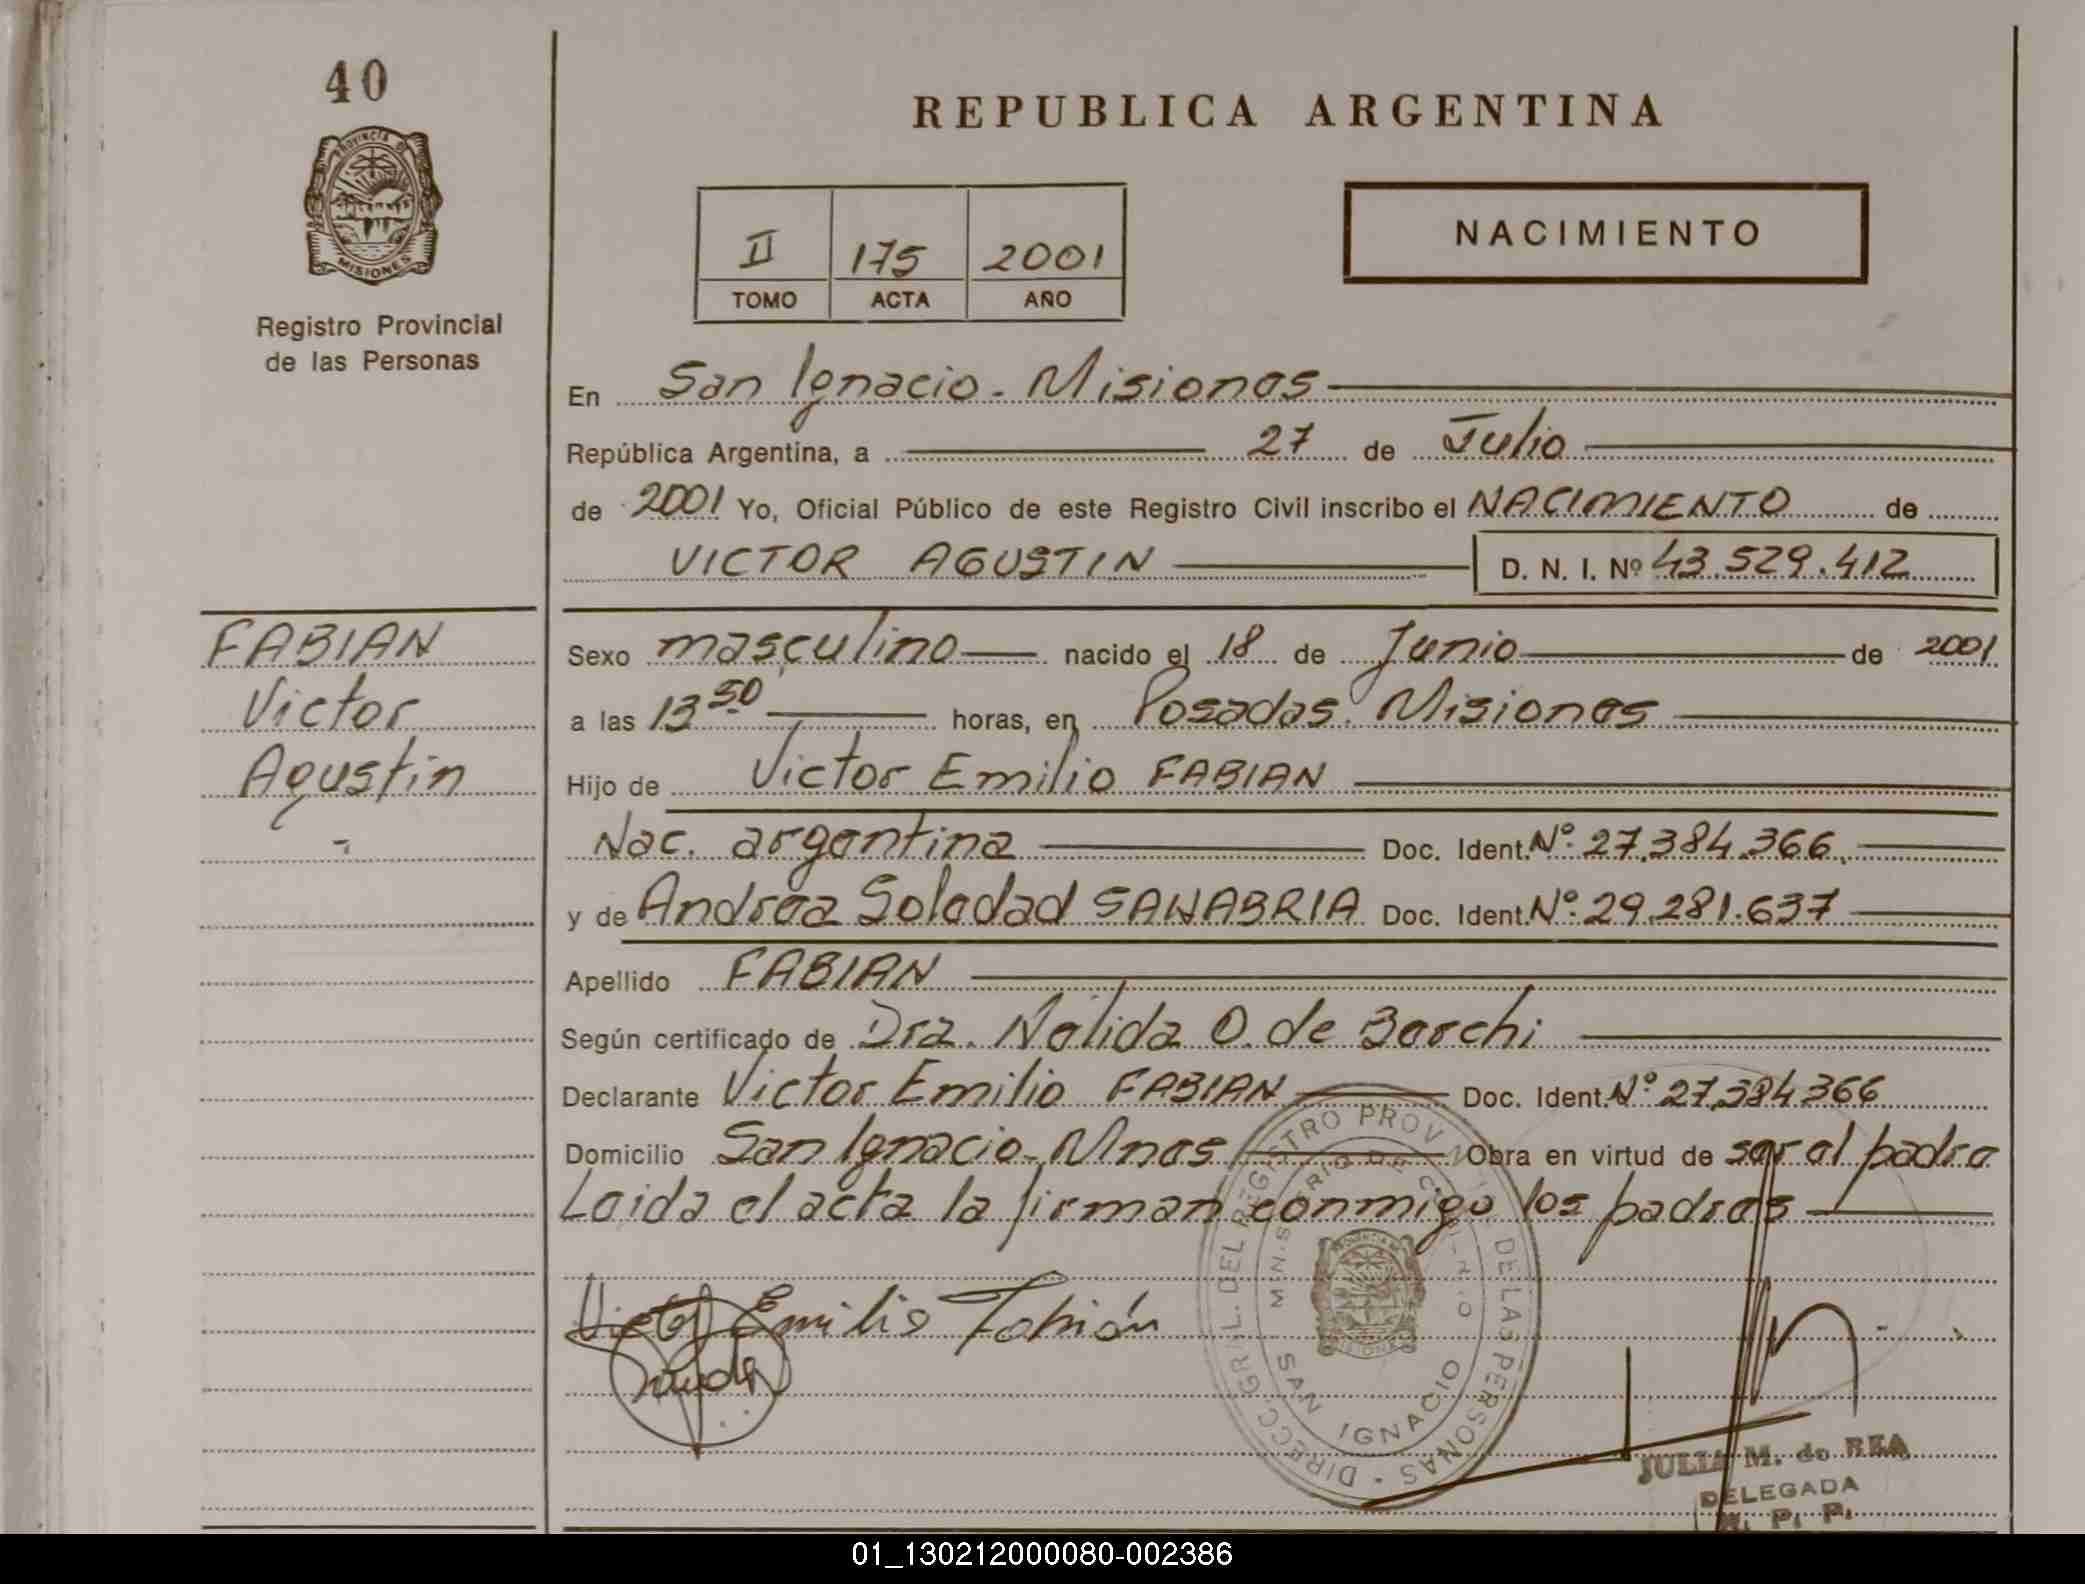 40
PROVINCIA DE
MISIONES
Registro Provincial
de las Personas
REPUBLICA ARGENTINA
II 175 2001
TOMO ACTA AÑO
NACIMIENTO
En San Ignacio - Misiones
República Argentina, a 27 de Julio
de 2001 Yo, Oficial Público de este Registro Civil inscribo el NACIMIENTO de
VICTOR AGUSTIN D. N. I. Nº 43.529.412
FABIAN
Victor
Agustin
Sexo masculino nacido el 18 de Junio de 2001
a las 13 50 horas, en Posadas. Misiones
Hijo de Victor Emilio FABIAN
Nac. argentina Doc. Ident. Nº 27.384.366
y de Andrea Soledad SANABRIA Doc. Ident. Nº 29.281.637
Apellido FABIAN
Según certificado de Dra. Nelida O. de Borchi
Declarante Victor Emilio FABIAN Doc. Ident. Nº 27.384366
Domicilio San Ignacio - Mnes Obra en virtud de ser el padre
Leida el acta la firman conmigo los padres
Victor Emilio Fabián
DIRECC. GRAL. DEL REGISTRO PROV. DE LAS PERSONAS
SAN IGNACIO
JULIA M. de REA
DELEGADA
R. P. P.
01_130212000080-002386